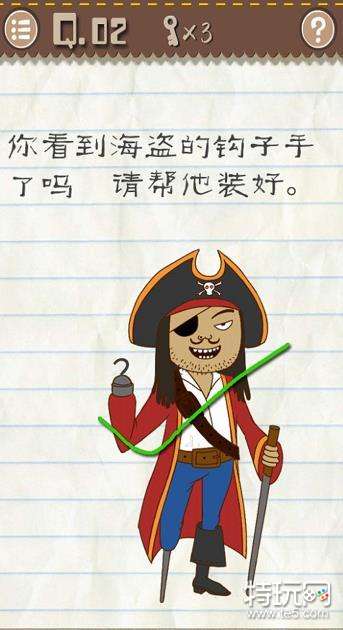 Q.02
×3
?
你看到海盗的钩子手
了吗 请帮他装好。
特玩网
www.te5.com